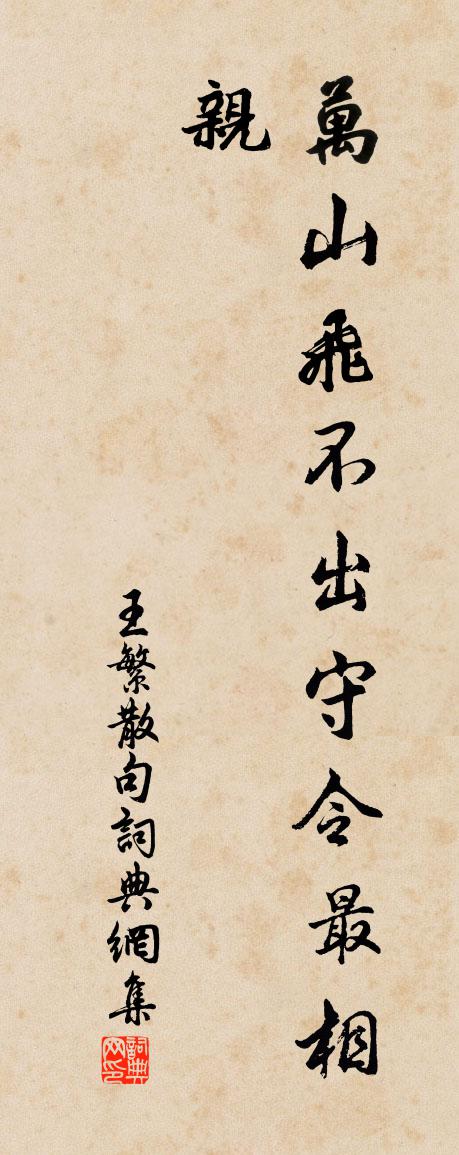 萬山飛不出守令最相
親
王繁散句詞典網集
詞典网印